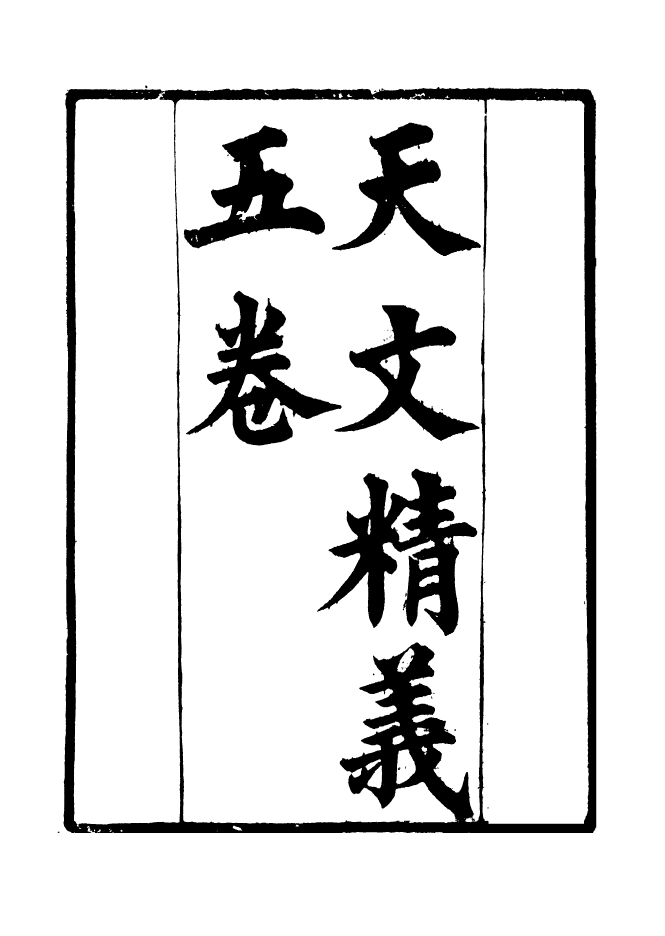 天文精義
五卷